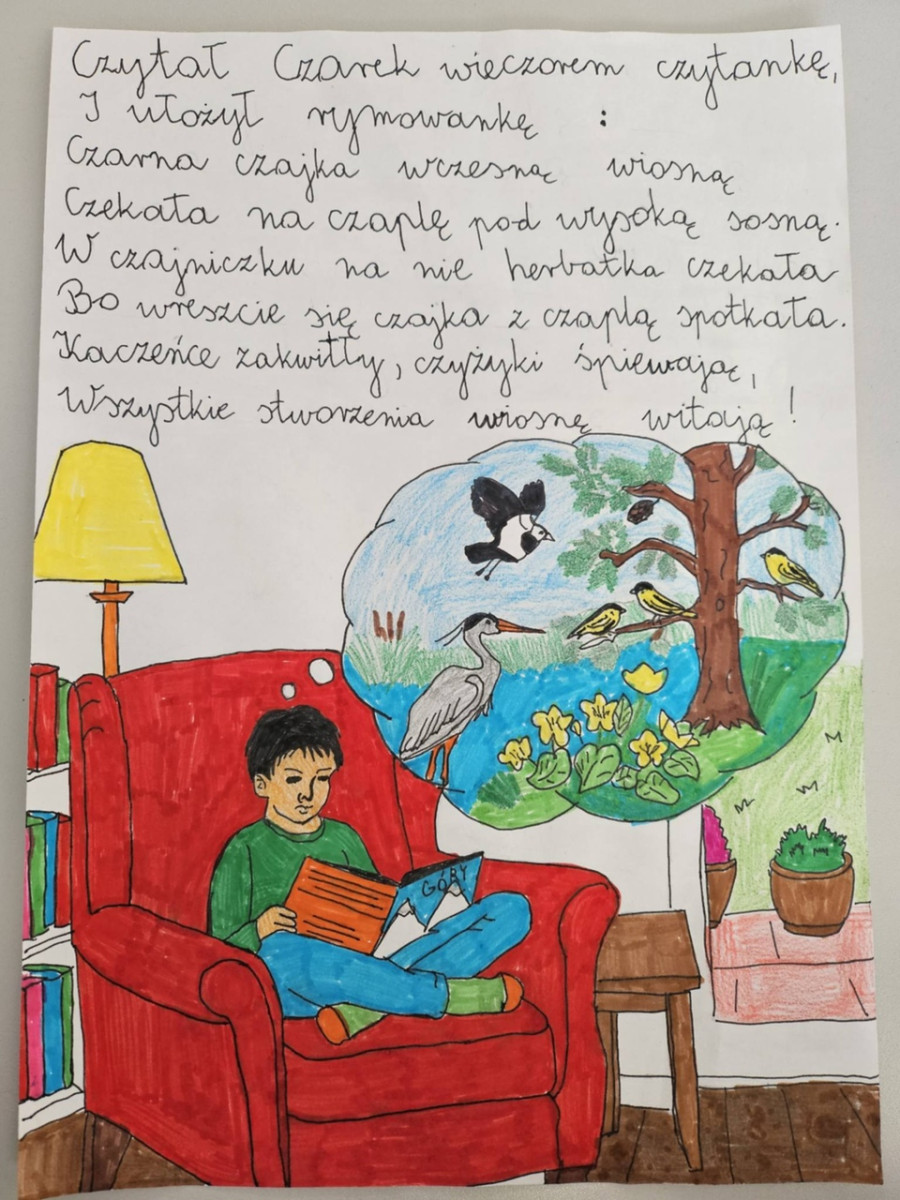 Czytał Czarek wieczorem czytankę,
I ułożył rymowankę :
Czarna czajka wczesną wiosną
Czekała na czaplę pod wysoką sosną.
W czajniczku na nie herbatka czekała
Bo wreszcie się czajka z czaplą spotkała.
Kaczeńce zakwitły, czyżyki śpiewają,
Wszystkie stworzenia wiosnę witają!
GÓRY